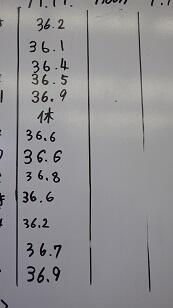 36.2
36.1
36.4
36.5
36.9
休
36.6
36.6
36.8
36.6
36.2
36.7
36.9